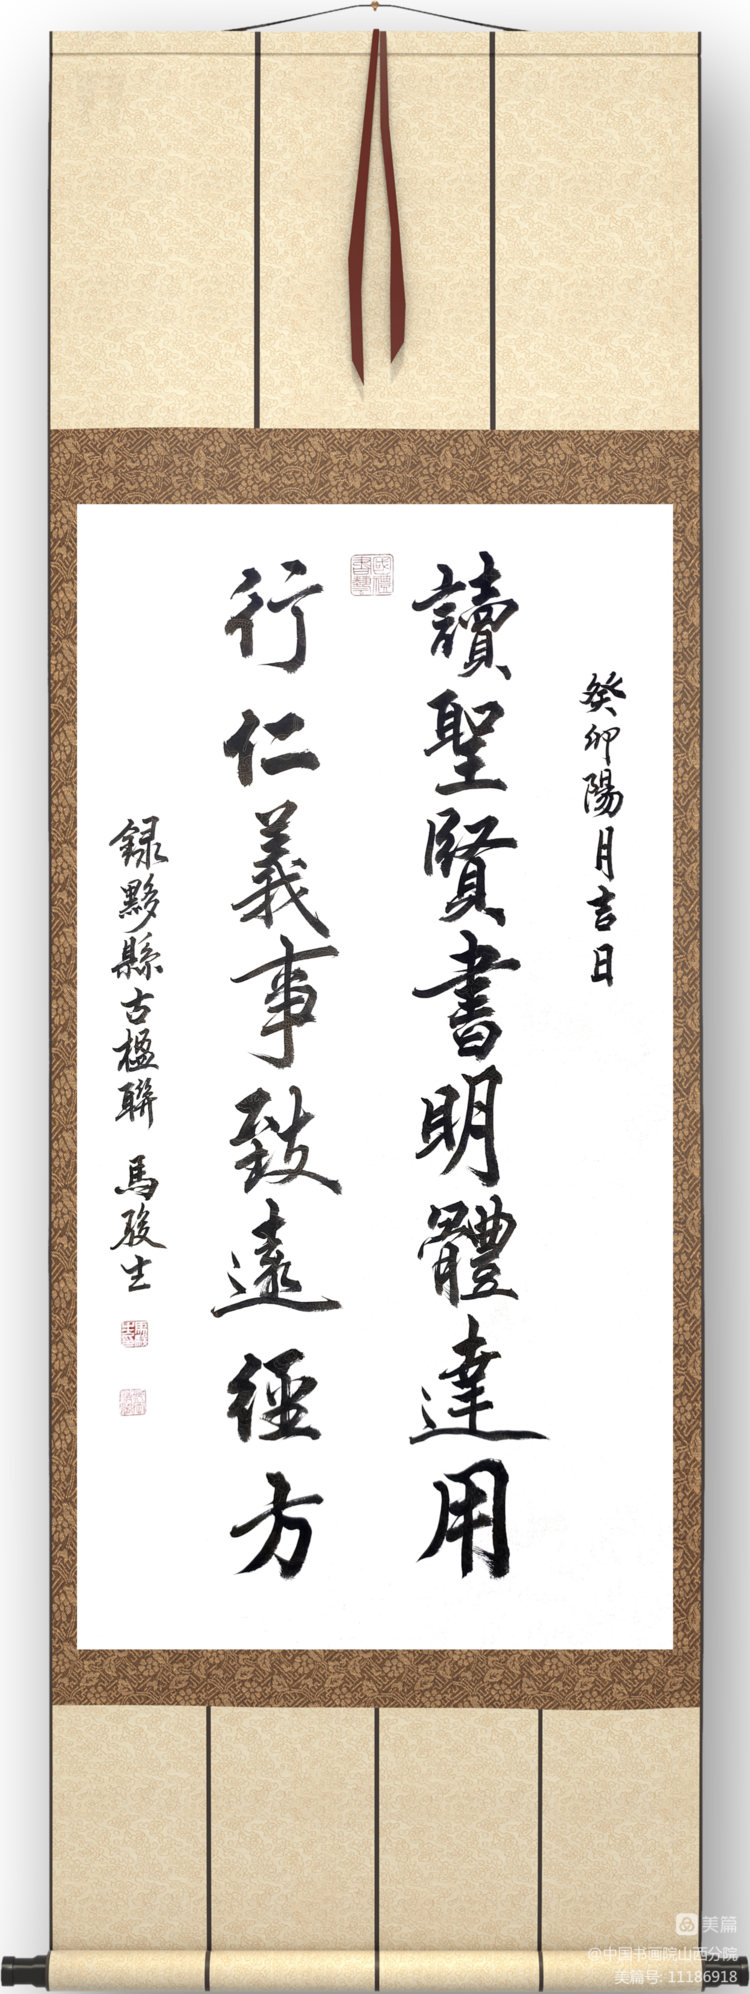 癸卯陽月吉日
讀聖賢書明體達用
行仁義事致遠經方
録黟縣古楹聯 馬駿生
美篇
@中国书画院山西分院
美篇号: 11186918